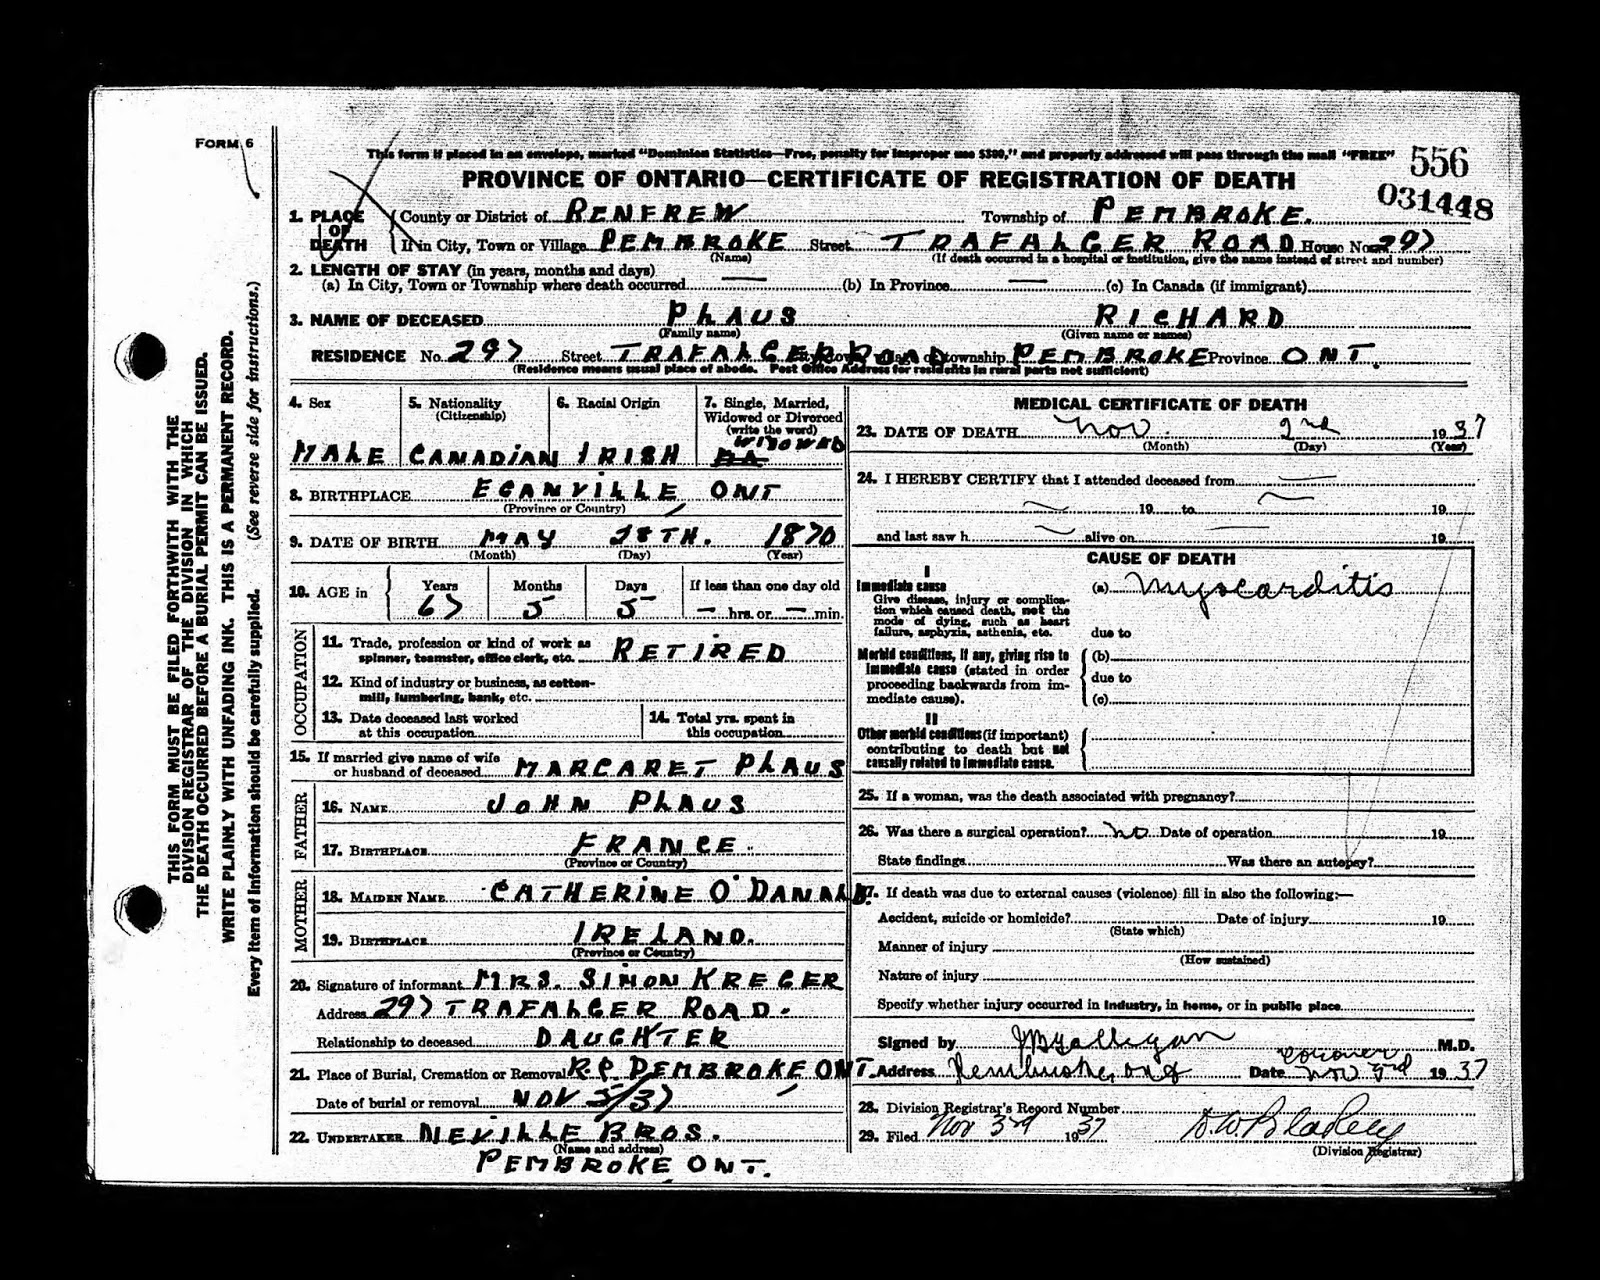 FORM 6
This form if placed in an envelope, marked "Dominion Statistics—Free, penalty for improper use $300," and properly addressed will pass through the mail "FREE"
556
PROVINCE OF ONTARIO—CERTIFICATE OF REGISTRATION OF DEATH
031448
1. PLACE OF DEATH
County or District of RENFREW Township of PEMBROKE.
If in City, Town or Village PEMBROKE Street TRAFALGER ROAD House No. 297
(Name) (If death occurred in a hospital or institution, give the name instead of street and number)
2. LENGTH OF STAY (in years, months and days)
(a) In City, Town or Township where death occurred — (b) In Province — (c) In Canada (if immigrant)
3. NAME OF DECEASED PLAUS RICHARD
(Family name) (Given name or names)
RESIDENCE No. 297 Street TRAFALGER ROAD township PEMBROKE Province ONT.
(Residence means usual place of abode. Post Office Address for residents in rural parts not sufficient)
4. Sex
MALE
5. Nationality
(Citizenship)
CANADIAN
6. Racial Origin
IRISH
7. Single, Married,
Widowed or Divorced
(write the word)
WIDOWED
8. BIRTHPLACE EGANVILLE, ONT
(Province or Country)
9. DATE OF BIRTH MAY 28TH. 1870
(Month) (Day) (Year)
10. AGE in
Years Months Days If less than one day old
67 5 5 — hrs. or — min.
OCCUPATION
11. Trade, profession or kind of work as
spinner, teamster, office clerk, etc. RETIRED
12. Kind of industry or business, as cotton-
mill, lumbering, bank, etc.
13. Date deceased last worked
at this occupation
14. Total yrs. spent in
this occupation
15. If married give name of wife
or husband of deceased MARGARET PLAUS
FATHER
16. NAME JOHN PLAUS
17. BIRTHPLACE FRANCE.
(Province or Country)
MOTHER
18. MAIDEN NAME CATHERINE O'DANALD.
19. BIRTHPLACE IRELAND.
(Province or Country)
20. Signature of informant MRS. SIMON KREGER
Address 297 TRAFALGER ROAD.
Relationship to deceased DAUGHTER
21. Place of Burial, Cremation or Removal R.C. PEMBROKE, ONT.
Date of burial or removal NOV 5/37
22. UNDERTAKER NEVILLE BROS.
(Name and address)
PEMBROKE ONT.
MEDICAL CERTIFICATE OF DEATH
23. DATE OF DEATH Nov. 2nd 1937
(Month) (Day) (Year)
24. I HEREBY CERTIFY that I attended deceased from —
— 19 to — 19
and last saw h — alive on — 19
CAUSE OF DEATH
I
Immediate cause
Give disease, injury or complica-
tion which caused death, not the
mode of dying, such as heart
failure, asphyxia, asthenia, etc.
(a) Myocarditis
due to
Morbid conditions, if any, giving rise to
immediate cause (stated in order
proceeding backwards from im-
mediate cause).
(b)
due to
(c)
II
Other morbid conditions (if important)
contributing to death but not
causally related to immediate cause.
25. If a woman, was the death associated with pregnancy?
26. Was there a surgical operation? no Date of operation 19
State findings Was there an autopsy?
27. If death was due to external causes (violence) fill in also the following:—
Accident, suicide or homicide? Date of injury 19
(State which)
Manner of injury
(How sustained)
Nature of injury
Specify whether injury occurred in industry, in home, or in public place
Signed by J B Galligan M.D.
Coroner
Address Pembroke, Ont Date Nov 3rd 1937
28. Division Registrar's Record Number
29. Filed Nov 3rd 1937 D.W. Bladley
(Division Registrar)
THIS FORM MUST BE FILED FORTHWITH WITH THE
DIVISION REGISTRAR OF THE DIVISION IN WHICH
THE DEATH OCCURRED BEFORE A BURIAL PERMIT CAN BE ISSUED.
WRITE PLAINLY WITH UNFADING INK. THIS IS A PERMANENT RECORD.
Every item of information should be carefully supplied. (See reverse side for instructions.)